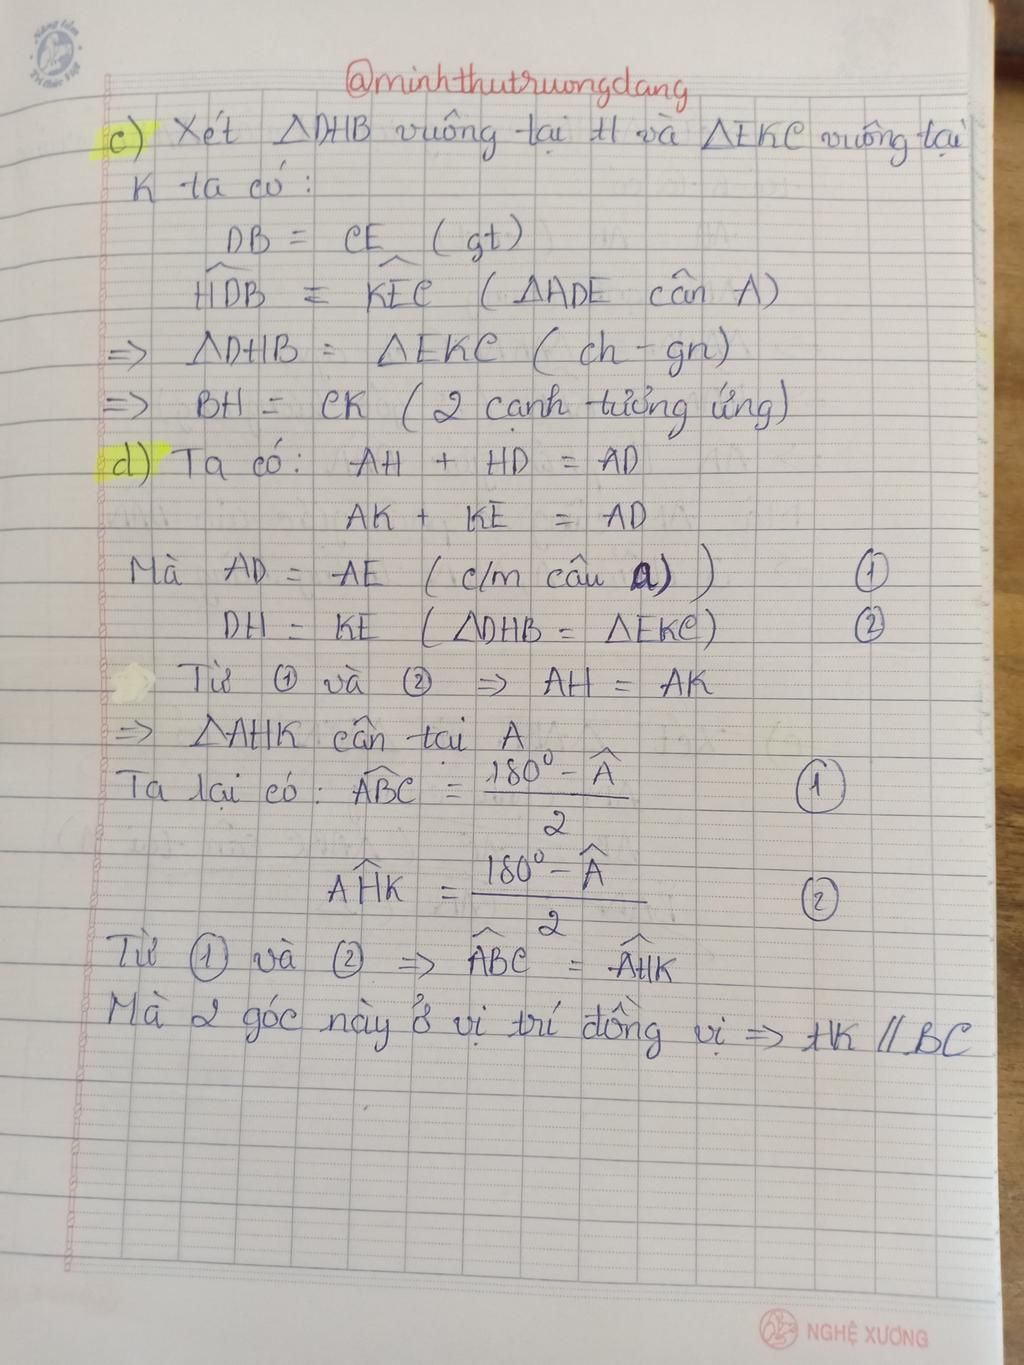 Năng tầm
Tri thức Việt
@minhthutruongdang
c) Xét ΔDHB vuông tại H và ΔEKC vuông tại
K ta có:
DB = CE (gt)
\widehat{HDB} = \widehat{KEC} (ΔADE cân A)
=> ΔDHB = ΔEKC (ch - gn)
=> BH = CK (2 cạnh tương ứng)
d) Ta có: AH + HD = AD
AK + KE = AD
Mà AD = AE (c/m câu a)) ①
DH = KE (ΔDHB = ΔEKC) ②
Từ ① và ② => AH = AK
=> ΔAHK cân tại A
Ta lại có: \widehat{ABC} = \frac{180° - \widehat{A}}{2} ①
\widehat{AHK} = \frac{180° - \widehat{A}}{2} ②
Từ ① và ② => \widehat{ABC} = \widehat{AHK}
Mà 2 góc này ở vị trí đồng vị => HK // BC
NGHỆ XƯƠNG